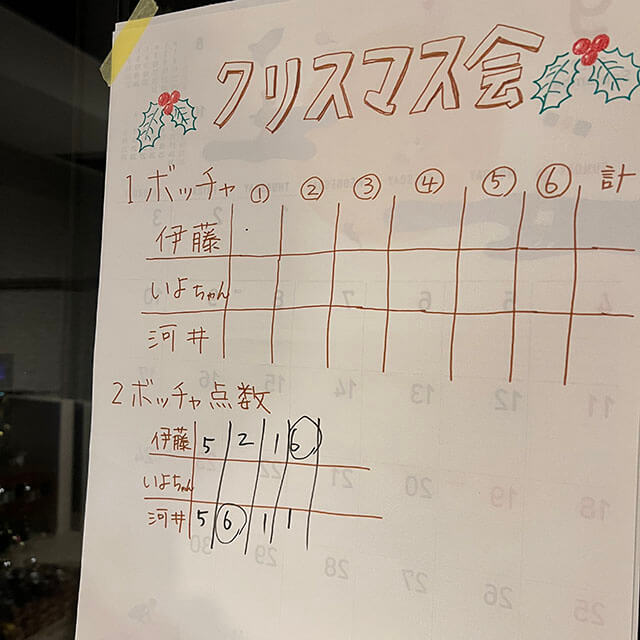 クリスマス会
1 ボッチャ ① ② ③ ④ ⑤ ⑥ 計
伊藤
いよちゃん
河井
2 ボッチャ点数
伊藤 5 2 1 6
いよちゃん
河井 5 6 1 1